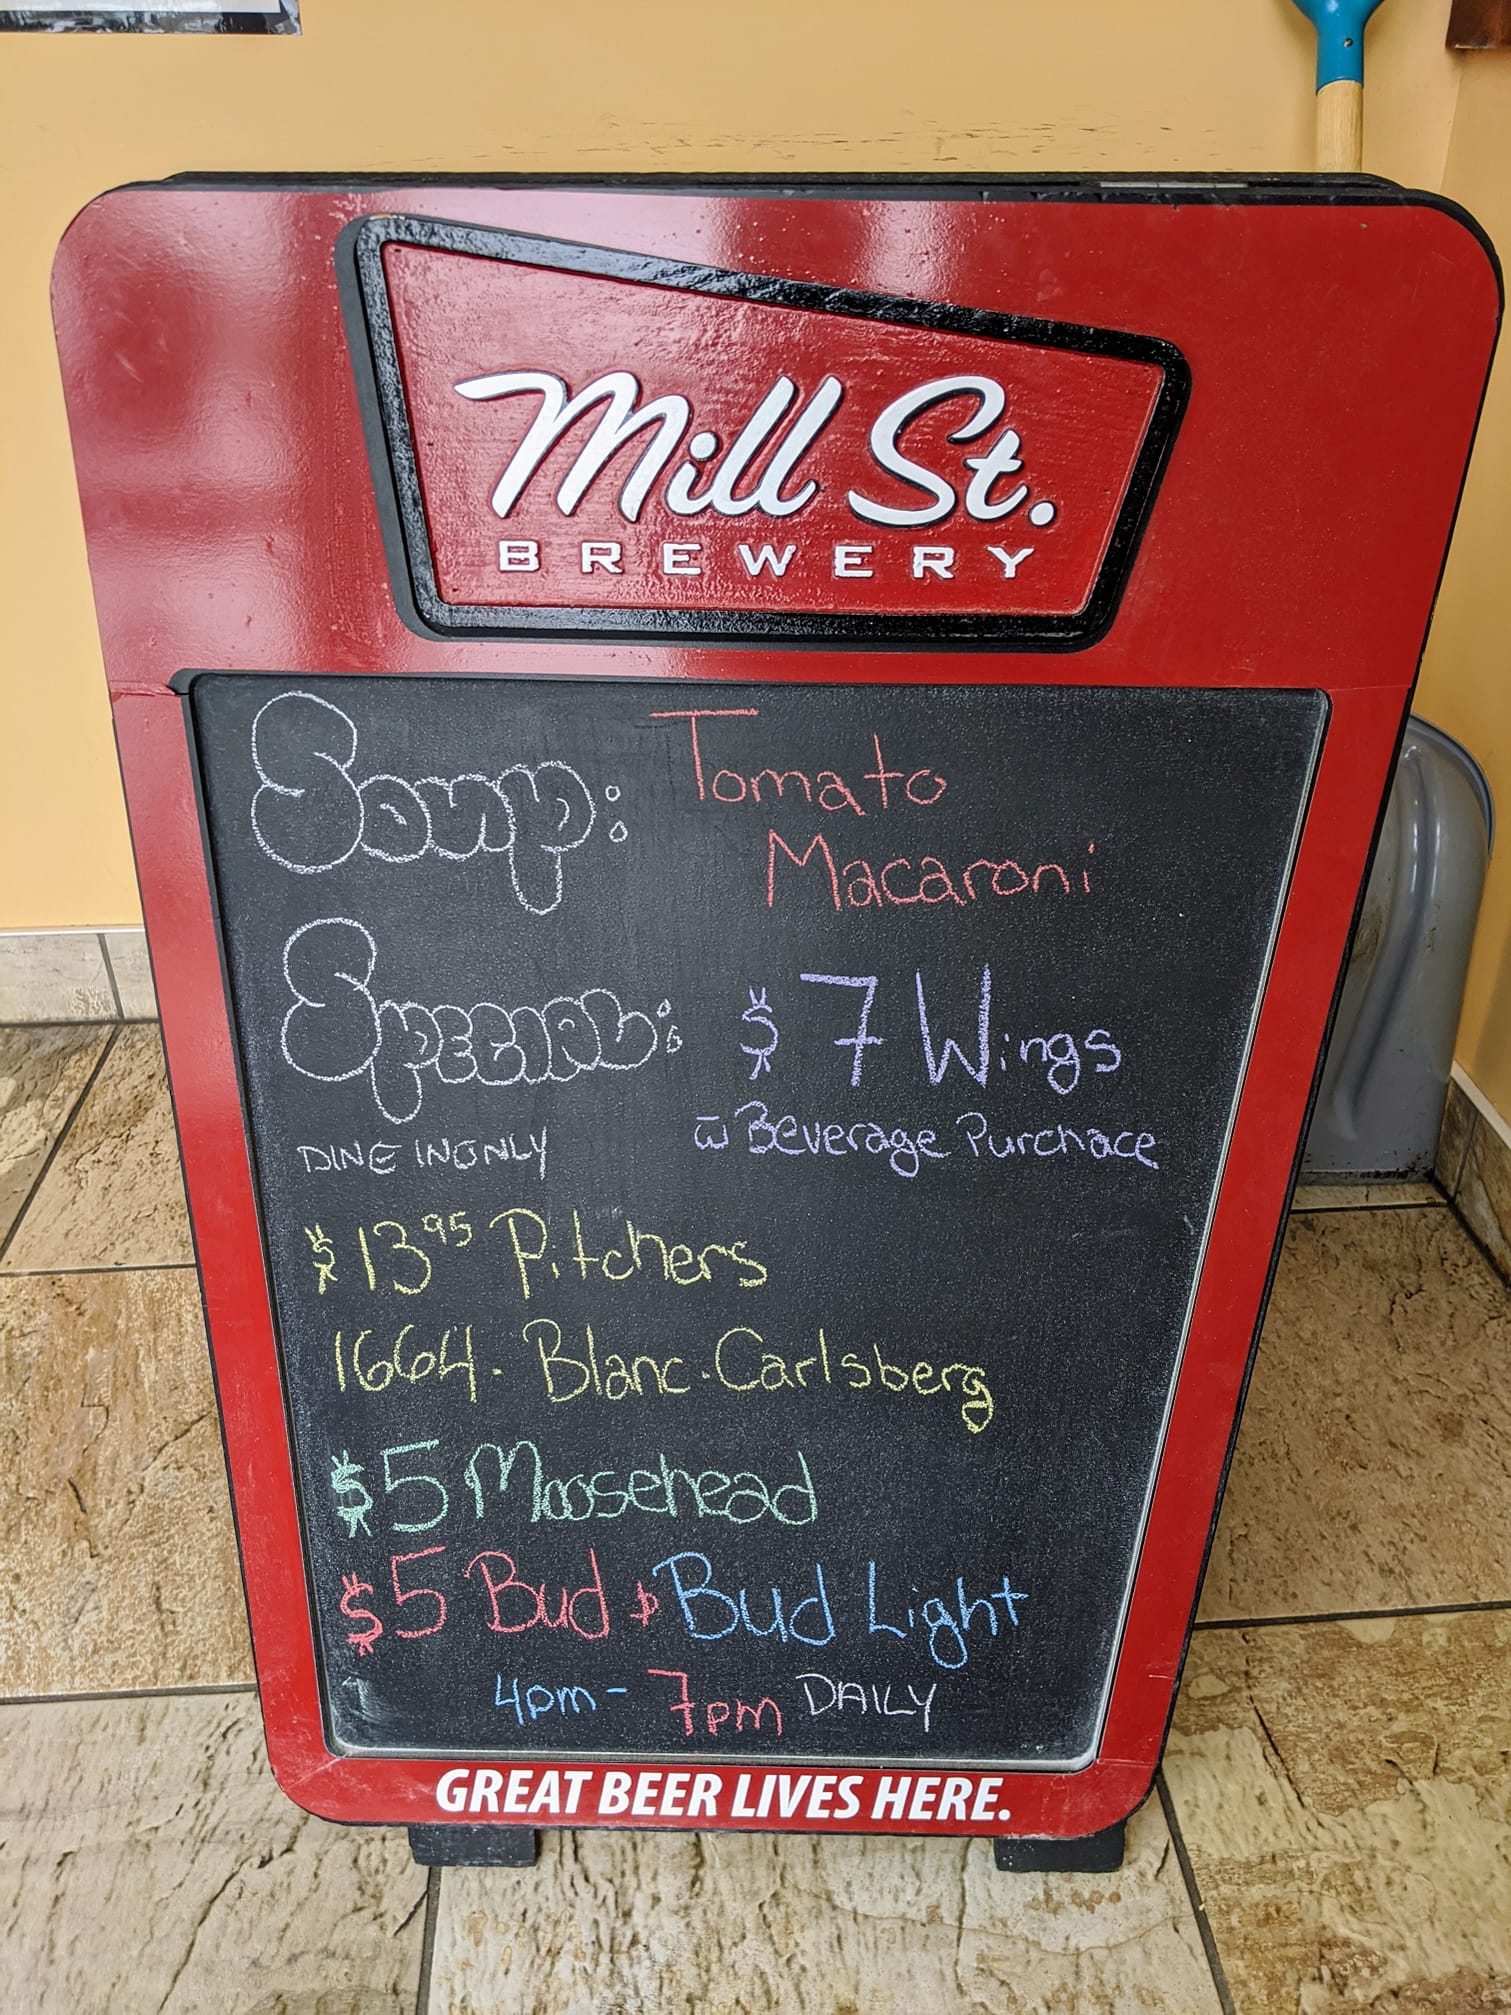 Mill St.
BREWERY
Soup: Tomato
Macaroni
SPECIAL: $7 Wings
DINE IN ONLY w Beverage Purchace
$13.95 Pitchers
1664 · Blanc · Carlsberg
$5 Moosehead
$5 Bud & Bud Light
4pm - 7pm DAILY
GREAT BEER LIVES HERE.